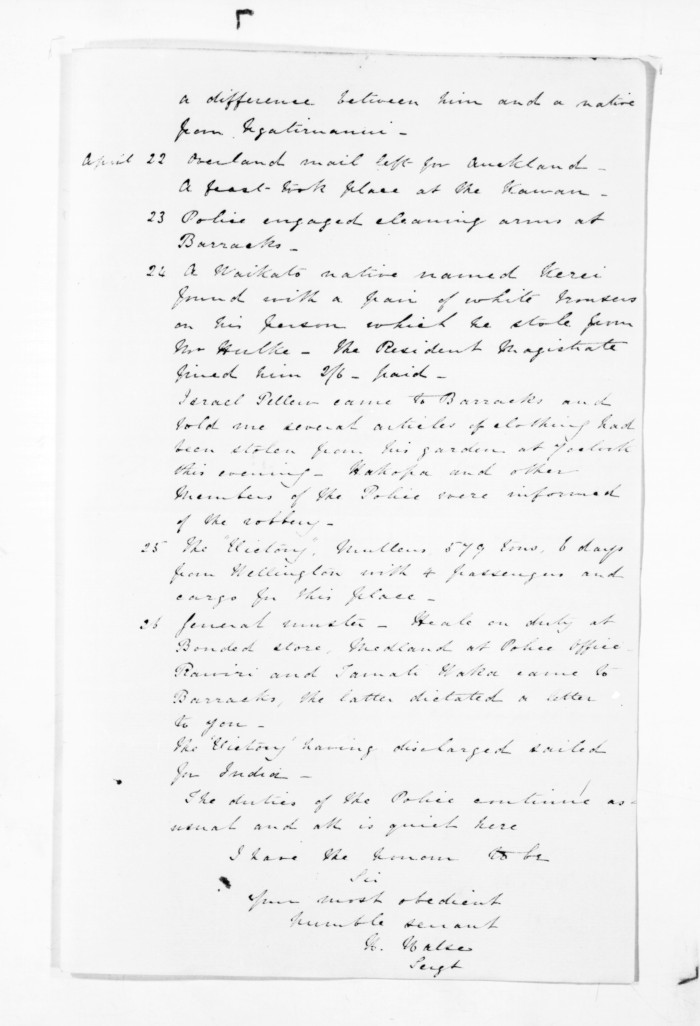 a difference between him and a native
from Ngatiruanui -
April 22 Overland mail left for Auckland -
A feast took place at the Kawau -
23 Police engaged cleaning arms at
Barracks -
24 A Waikato native named Kerei
found with a pair of white trousers
on his person which he stole from
Mr Hulke - The Resident Magistrate
fined him 2/6 - paid -
Israel Pellew came to Barracks and
told me several articles of clothing had
been stolen from his garden at 7 oclock
this evening - Hakopa and other
Members of the Police were informed
of the robbery -
25 The "Victory", Mullens 579 tons, 6 days
from Wellington with 4 passengers and
cargo for this place -
26 General muster - Heale on duty at
Bonded store, Medland at Police Office -
Rawiri and Tamati Waka came to
Barracks, the latter dictated a letter
to you -
The 'Victory' having discharged sailed
for India -
The duties of the Police continue as
usual and all is quiet here
I have the honour to be
Sir
Your most obedient
humble servant
H. Halse
Sergt